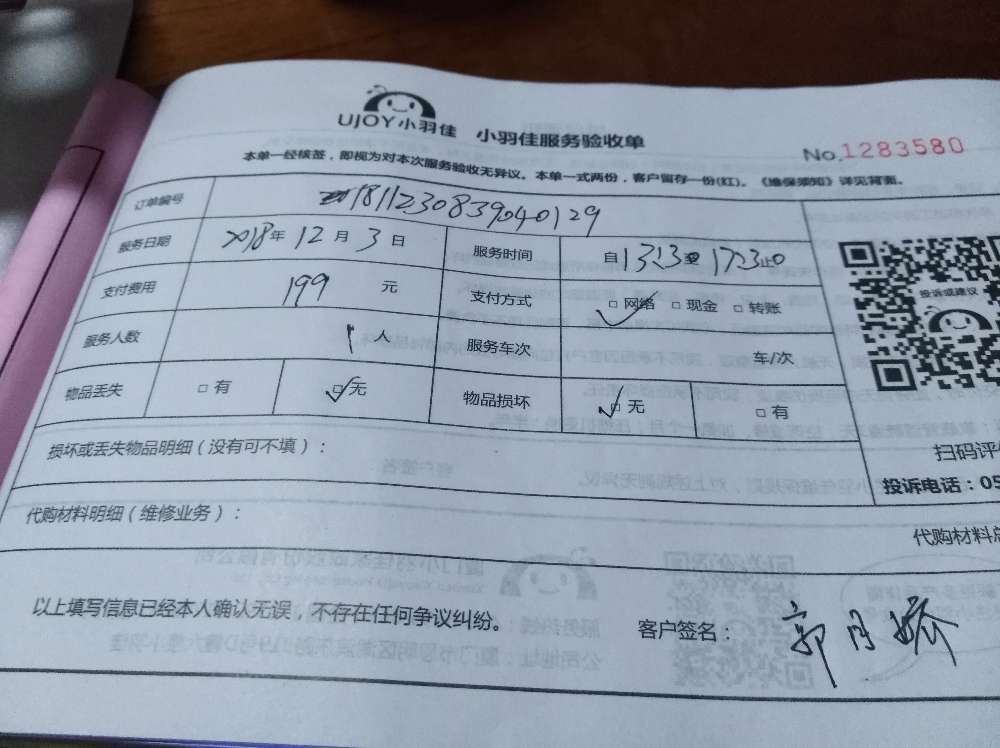 UJOY小羽佳 小羽佳服务验收单
No.1283580
本单一经核签，即视为对本次服务验收无异议。本单一式两份，客户留存一份(红)。《维保须知》详见背面。
订单编号 201811230839040129
服务日期 2018年12月3日 服务时间 自13:13至17:13止
支付费用 199 元 支付方式 □网络 □现金 □转账
服务人数 1 人 服务车次 车/次
物品丢失 □有 □无 物品损坏 □无 □有
投诉或建议
损坏或丢失物品明细（没有可不填）：
扫码评
投诉电话：05
代购材料明细（维修业务）：
代购材料总
以上填写信息已经本人确认无误，不存在任何争议纠纷。
客户签名：郭月娇